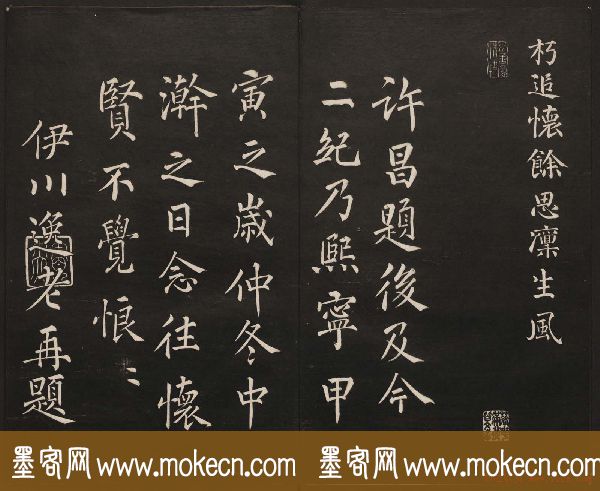 朽追懷餘思凜生風
许昌題後及今
二紀乃熙寧甲
寅之歲仲冬中
澣之日念往懷
賢不覺悵〻
伊川逸老再題
墨客网 www.mokecn.com 墨客网 www.mokecn.com